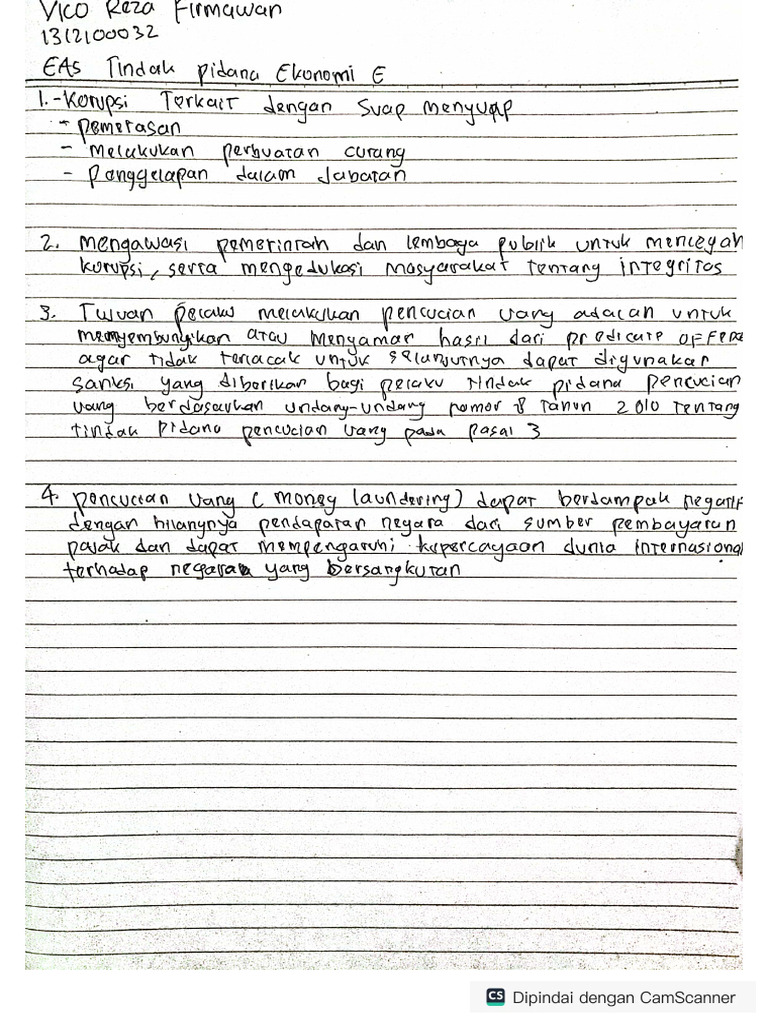 Vico Reza Firmawan
1312100032
EAS Tindak pidana Ekonomi E
1. - Korupsi Terkait dengan Suap menyuap
- pemerasan
- Melakukan perbuatan curang
- Penggelapan dalam Jabatan
2. Mengawasi pemerintah dan lembaga publik untuk mencegah
korupsi, serta mengedukasi masyarakat tentang integritas
3. Tujuan pelaku melakukan pencucian uang adalah untuk
menyembunyikan atau menyamar hasil dari predicate offens
agar tidak terlacak untuk selanjutnya dapat digunakan
sanksi yang diberikan bagi pelaku tindak pidana pencucian
uang berdasarkan undang-undang nomor 8 Tahun 2010 Tentang
tindak pidana pencucian uang pada pasal 3
4. pencucian uang (money laundering) dapat berdampak negatif
dengan hilangnya pendapatan negara dari sumber pembayaran
pajak dan dapat mempengaruhi kepercayaan dunia internasional
terhadap negara yang bersangkutan
CS Dipindai dengan CamScanner